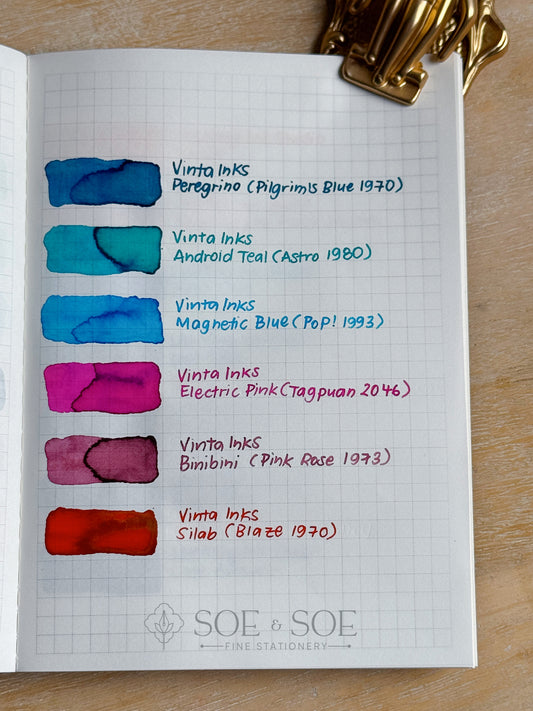 Vinta Inks
Peregrino (Pilgrim's Blue 1970)
Vinta Inks
Android Teal (Astro 1980)
Vinta Inks
Magnetic Blue (PoP! 1993)
Vinta Inks
Electric Pink (Tagpuan 2046)
Vinta Inks
Binibini (Pink Rose 1973)
Vinta Inks
Silab (Blaze 1970)
SOE & SOE
FINE STATIONERY